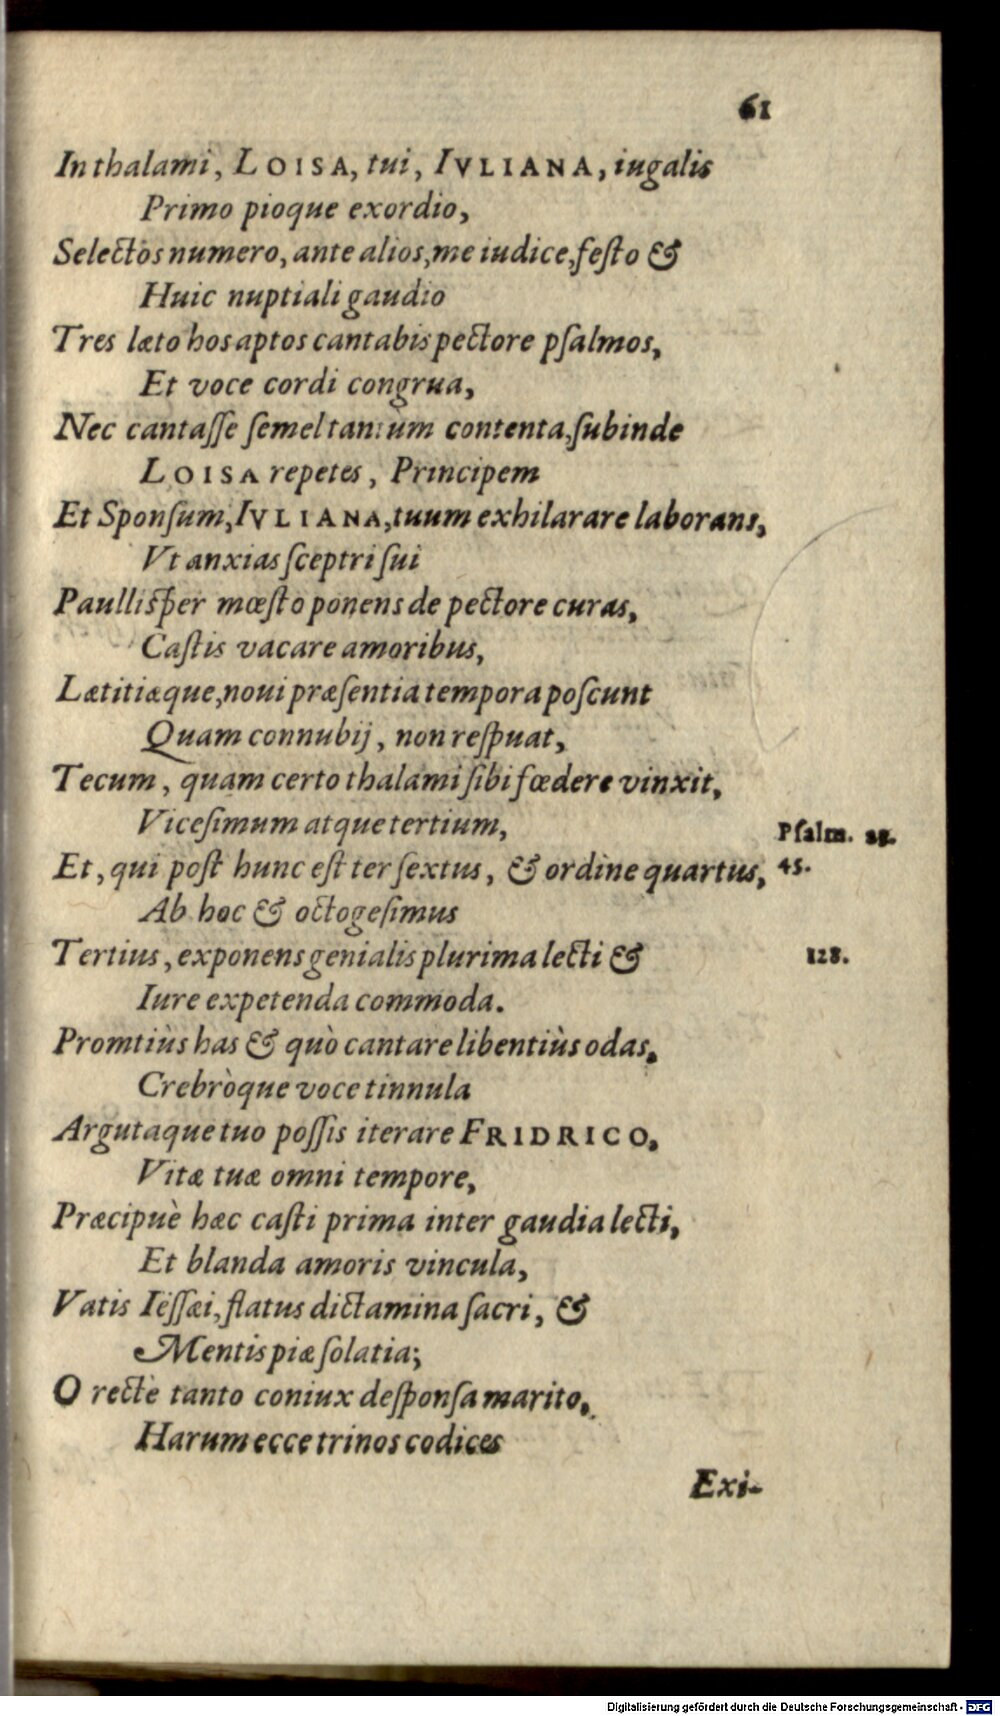 61
In thalami, LOISA, tui, IVLIANA, iugalis
Primo pioque exordio,
Selectos numero, ante alios, me iudice, feſto &
Huic nuptiali gaudio
Tres læto hos aptos cantabis pectore pſalmos,
Et voce cordi congrua,
Nec cantaſſe ſemel tantum contenta, ſubinde
LOISA repetes, Principem
Et Sponſum, IVLIANA, tuum exhilarare laborans,
Vt anxias ſceptri ſui
Paulliſper mœſto ponens de pectore curas,
Caſtis vacare amoribus,
Lætitiæque, noui præſentia tempora poſcunt
Quam connubij, non reſpuat,
Tecum, quam certo thalami ſibi fœdere vinxit,
Viceſimum atque tertium, Pſalm. 23.
Et, qui poſt hunc eſt ter ſextus, & ordine quartus, 45.
Ab hoc & octogeſimus
Tertius, exponens genialis plurima lecti & 128.
Iure expetenda commoda.
Promtiùs has & quò cantare libentiùs odas,
Crebròque voce tinnula
Argutaque tuo poſſis iterare FRIDRICO,
Vitæ tuæ omni tempore,
Præcipuè hæc caſti prima inter gaudia lecti,
Et blanda amoris vincula,
Vatis Ieſſæi, flatus dictamina ſacri, &
Mentis piæ ſolatia;
O rectè tanto coniux deſponſa marito,
Harum ecce trinos codices
Exi-
Digitalisierung gefördert durch die Deutsche Forschungsgemeinschaft - DFG